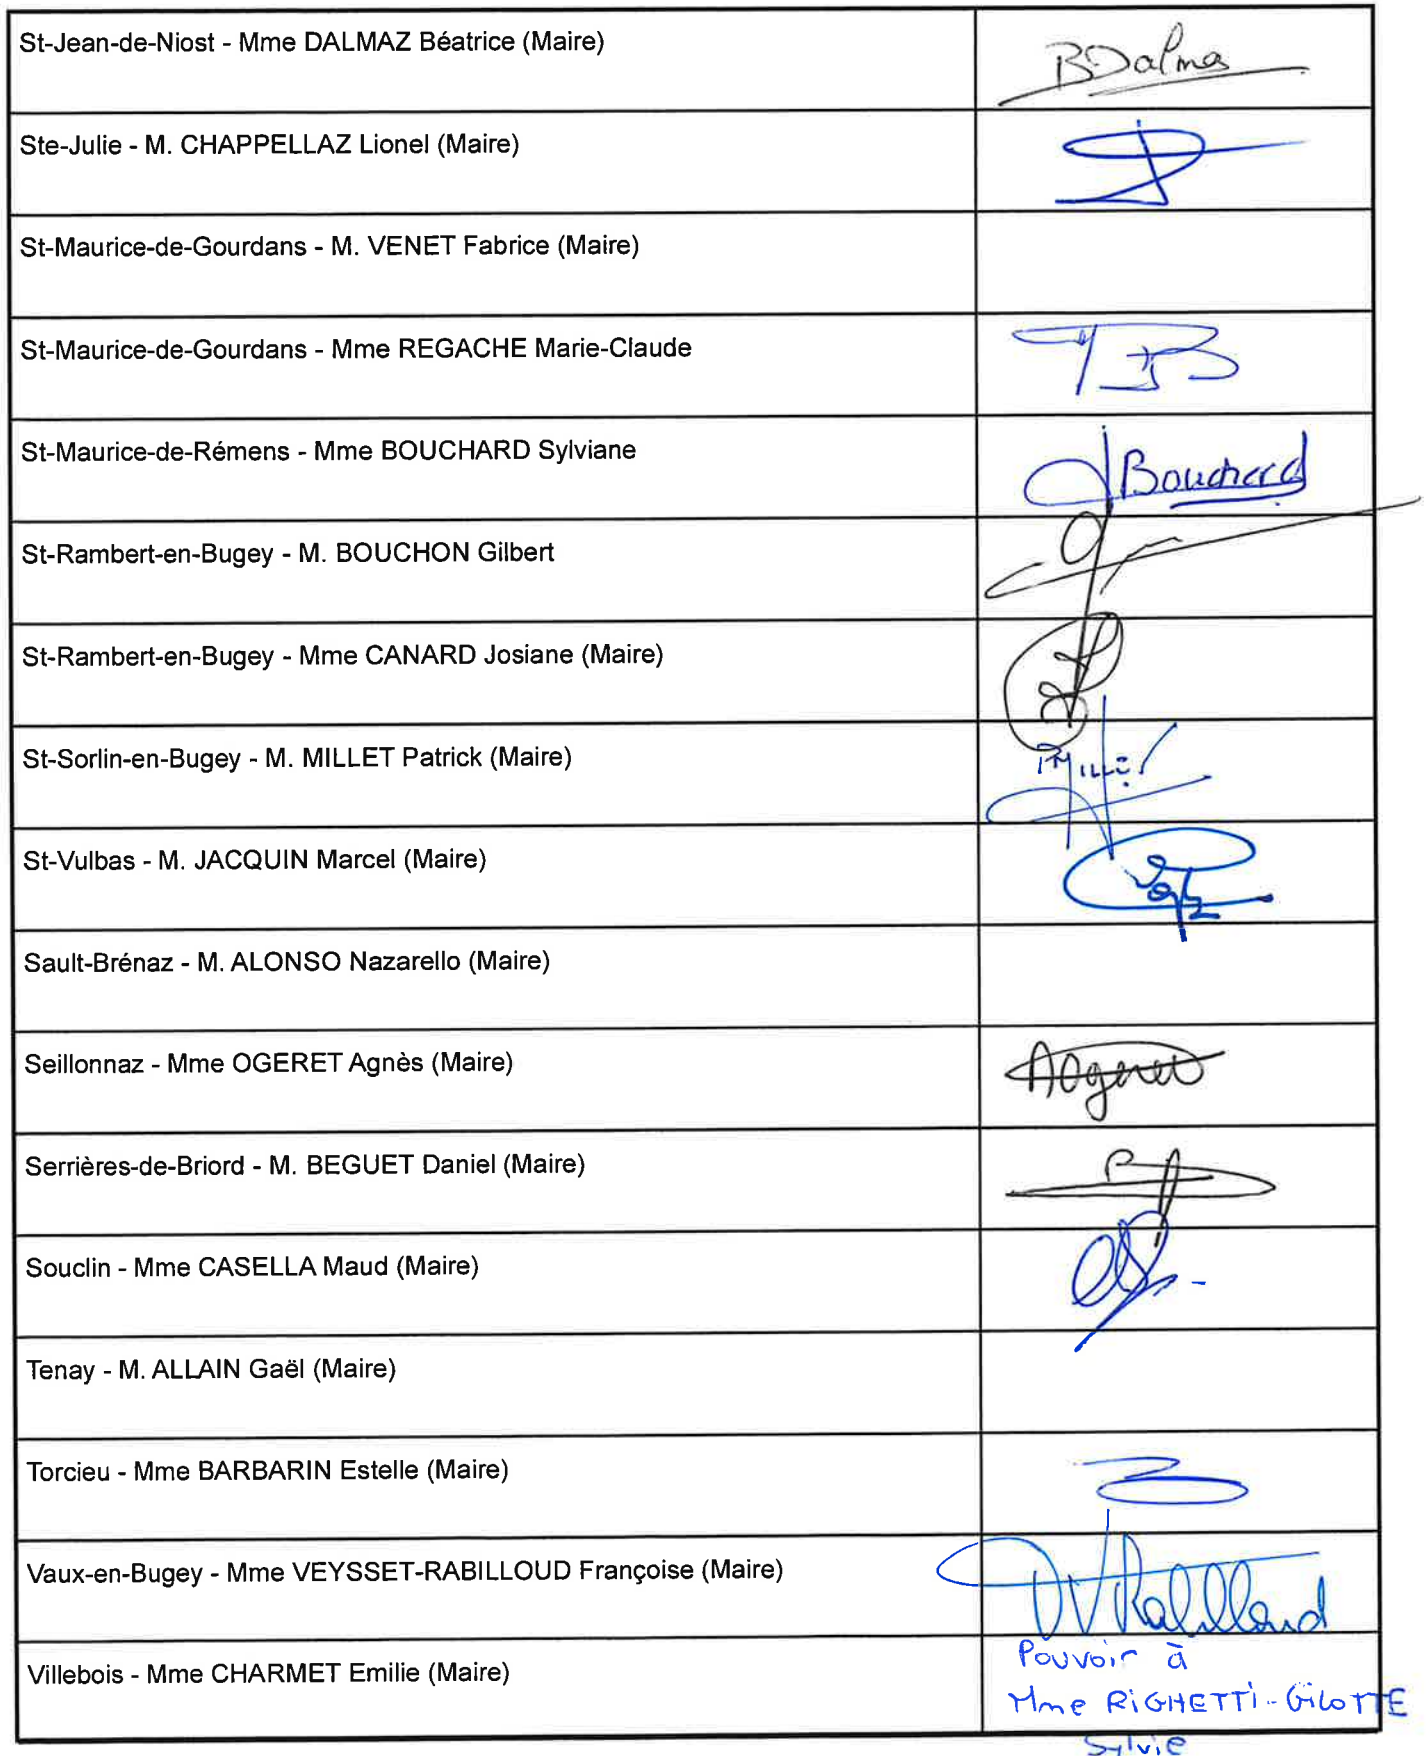 St-Jean-de-Niost - Mme DALMAZ Béatrice (Maire)
B Dalmas
Ste-Julie - M. CHAPPELLAZ Lionel (Maire)
St-Maurice-de-Gourdans - M. VENET Fabrice (Maire)
St-Maurice-de-Gourdans - Mme REGACHE Marie-Claude
St-Maurice-de-Rémens - Mme BOUCHARD Sylviane
Bouchard
St-Rambert-en-Bugey - M. BOUCHON Gilbert
St-Rambert-en-Bugey - Mme CANARD Josiane (Maire)
St-Sorlin-en-Bugey - M. MILLET Patrick (Maire)
St-Vulbas - M. JACQUIN Marcel (Maire)
Sault-Brénaz - M. ALONSO Nazarello (Maire)
Seillonnaz - Mme OGERET Agnès (Maire)
AOgeret
Serrières-de-Briord - M. BEGUET Daniel (Maire)
Souclin - Mme CASELLA Maud (Maire)
Tenay - M. ALLAIN Gaël (Maire)
Torcieu - Mme BARBARIN Estelle (Maire)
Vaux-en-Bugey - Mme VEYSSET-RABILLOUD Françoise (Maire)
VRabilloud
Villebois - Mme CHARMET Emilie (Maire)
Pouvoir à
Mme RIGHETTI-GILOTTE
Sylvie